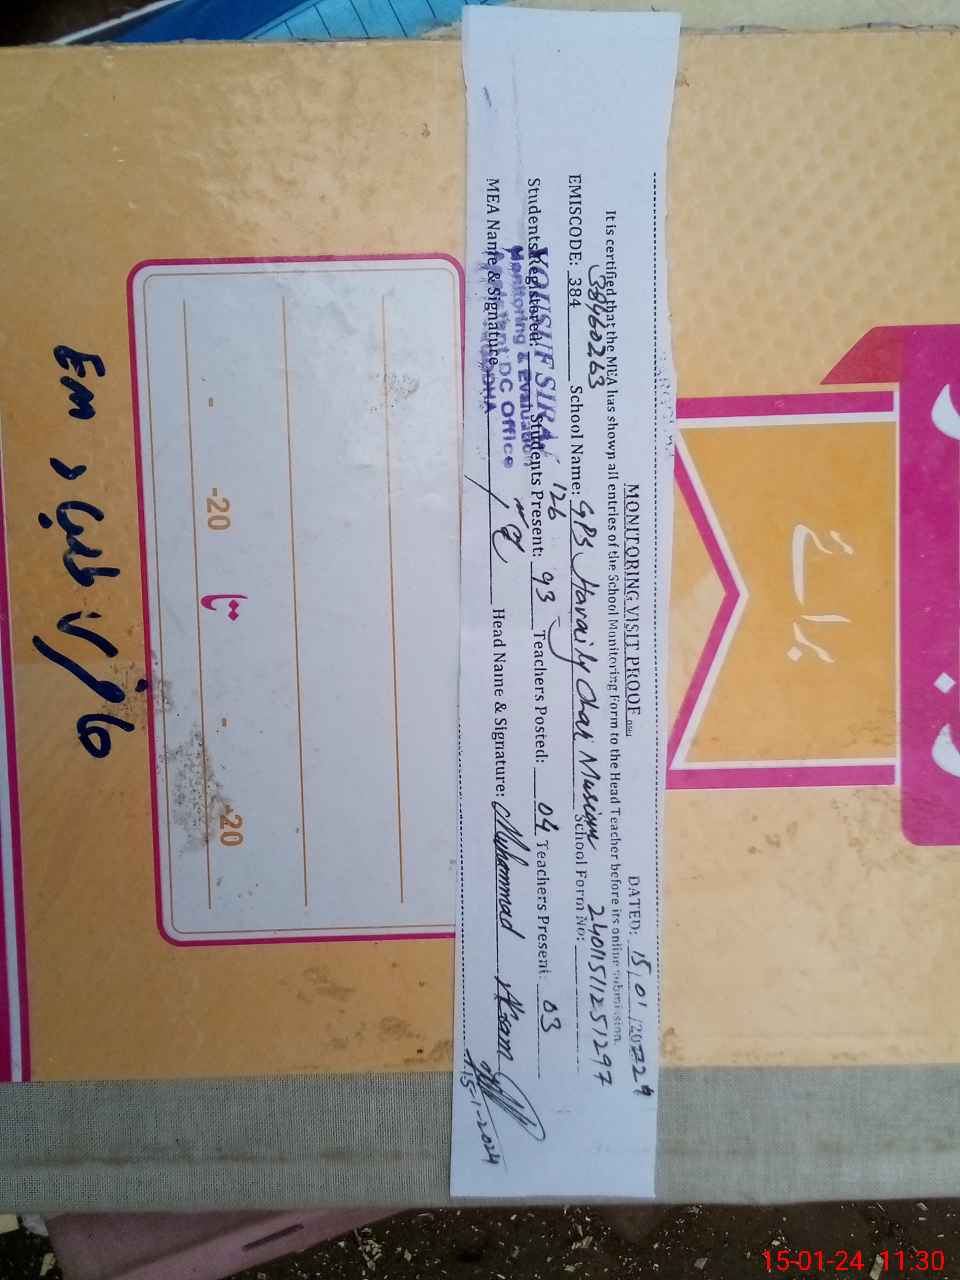 MONITORING VISIT PROOF
DATED: 15/01/2024
It is certified that the MEA has shown all entries of the School Monitoring Form to the Head Teacher before its online submission.
EMISCODE: 384 38460263 School Name: GPS Havaily Char School Form No: 24011511251297
Students Registered: 126 Students Present: 93 Teachers Posted: 04 Teachers Present: 03
MEA Name & Signature Head Name & Signature: Muhammad Akram
15-1-2024
YOUSUF SIRAJ
Monitoring & Evaluation
Assistant DC Office
برائے
تا
-20
-20
15-01-24 11:30